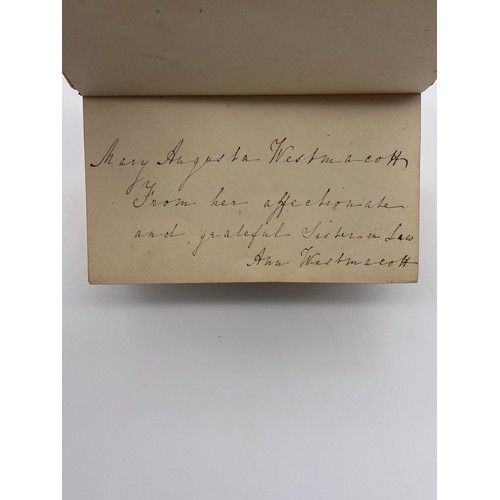 Mary Augusta Westmacott
From her affectionate
and grateful Sister in Law
Ann Westmacott